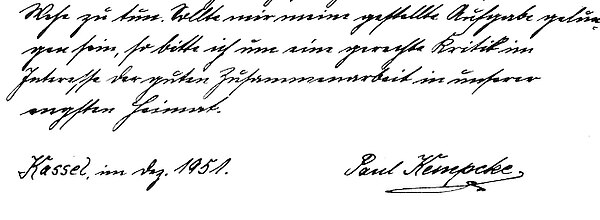 Wehe zu tun. Sollte mir meine gestellte Aufgabe gelun-
gen sein, so bitte ich um eine gerechte Kritik im
Interesse der guten Zusammenarbeit in unserer
engsten Heimat.
Kassel, im Dez. 1951. Paul Kempcke.